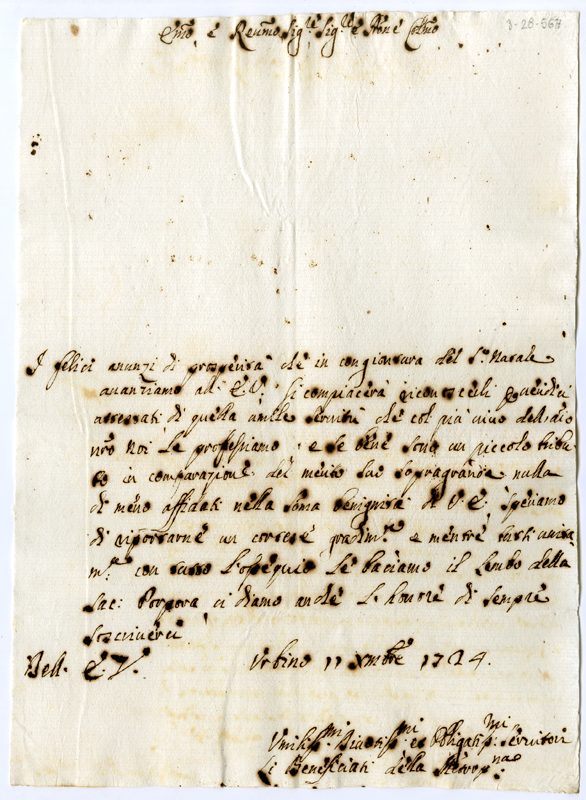 3-28-567
Emo e Remo Sig.re Sig.re e Prone Colmo
I felici anunzi di prosperità che in congiontura del S.to Natale
avanziamo all' E.V. si compiacerà riconoscerli
attestati di quella umile servitù che col più vivo dell'
nro noi le professiamo e se bene sono un piccolo tribu
to in comparazione del merito suo sopragrande nulla
di meno affidati nella soma benignità di V.E. speriamo
di riportarne un cortese gradim.to e mentre tutti
m.te con tutto l'ossequio le baciamo il lembo della
Sac: Porpora ci diamo anche l'honore di sempre
soscriverci
Dell' E.V. Urbino 11 Xmbre 1724.
Umiliss.mi Divotiss.mi et Obligatis.mi Servitori
Li Beneficiati della Metrop.na